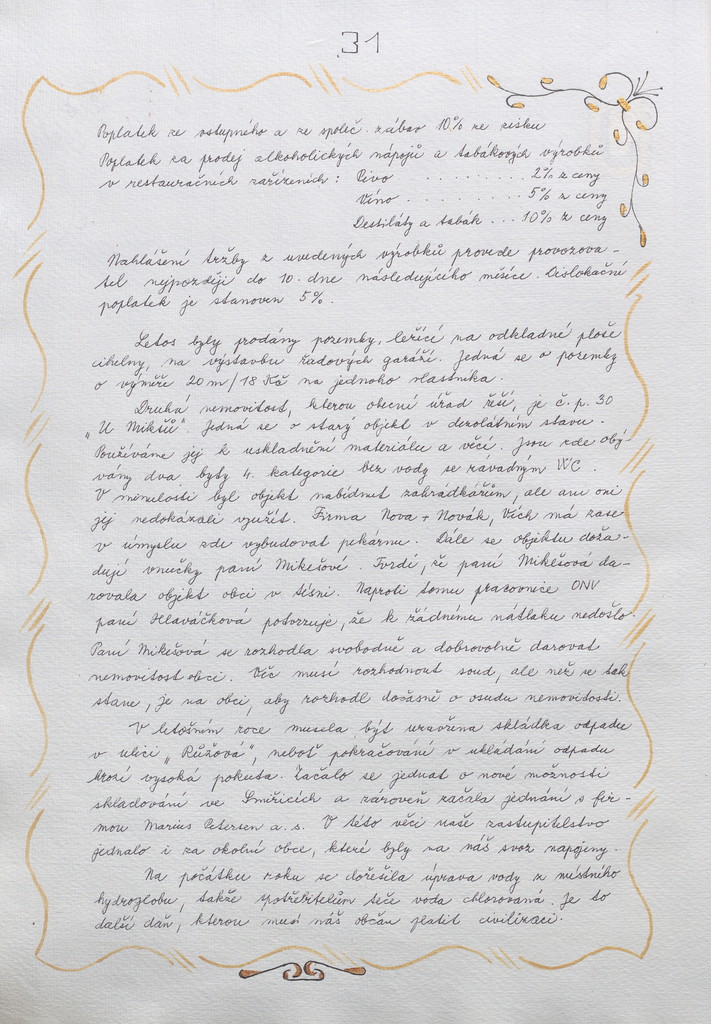 31
Poplatek ze vstupného a ze společ. zábav 10% ze zisku
Poplatek za prodej alkoholických nápojů a tabákových výrobků
v restauračních zařízeních : Pivo . . . . . . . . . . 2% z ceny
Víno . . . . . . . . . . 5% z ceny
Destiláty a tabák . . . 10% z ceny
Nahlášení tržby z uvedených výrobků provede provozova-
tel nejpozději do 10. dne následujícího měsíce. Dislokační
poplatek je stanoven 5%.
Letos byly prodány pozemky, ležící na odkladné ploše
cihelny, na výstavbu řadových garáží. Jedná se o pozemky
o výměře 20 m / 18 Kč na jednoho vlastníka.
Druhá nemovitost, kterou obecní úřad řeší, je č. p. 30
„U Mikšů". Jedná se o starý objekt v dezolátním stavu.
Používáme jej k uskladnění materiálu a věcí. Jsou zde obý-
vány dva byty 4. kategorie bez vody se závadným WC.
V minulosti byl objekt nabídnut zahrádkářům, ale ani oni
jej nedokázali využít. Firma Nova + Novák, Vích má zase
v úmyslu zde vybudovat pekárnu. Dále se objektu doža-
dují vnučky paní Mikešové. Tvrdí, že paní Mikešová da-
rovala objekt obci v tísni. Naproti tomu pracovnice ONV
paní Hlaváčková potvrzuje, že k žádnému nátlaku nedošlo.
Paní Mikešová se rozhodla svobodně a dobrovolně darovat
nemovitost obci. Věc musí rozhodnout soud, ale než se tak
stane, je na obci, aby rozhodl dočasně o osudu nemovitosti.
V letošním roce musela být uzavřena skládka odpadu
v ulici „Růžová", neboť pokračování v ukládání odpadu
hrozí vysoká pokuta. Začalo se jednat o nové možnosti
skladování ve Smiřicích a zároveň začala jednání s fir-
mou Marius Petersen a. s. V této věci naše zastupitelstvo
jednalo i za okolní obce, které byly na náš svoz napojeny.
Na počátku roku se dořešila úprava vody z místního
hydroglobu, takže spotřebitelům teče voda chlorovaná. Je to
další daň, kterou musí náš občan platit civilizaci.